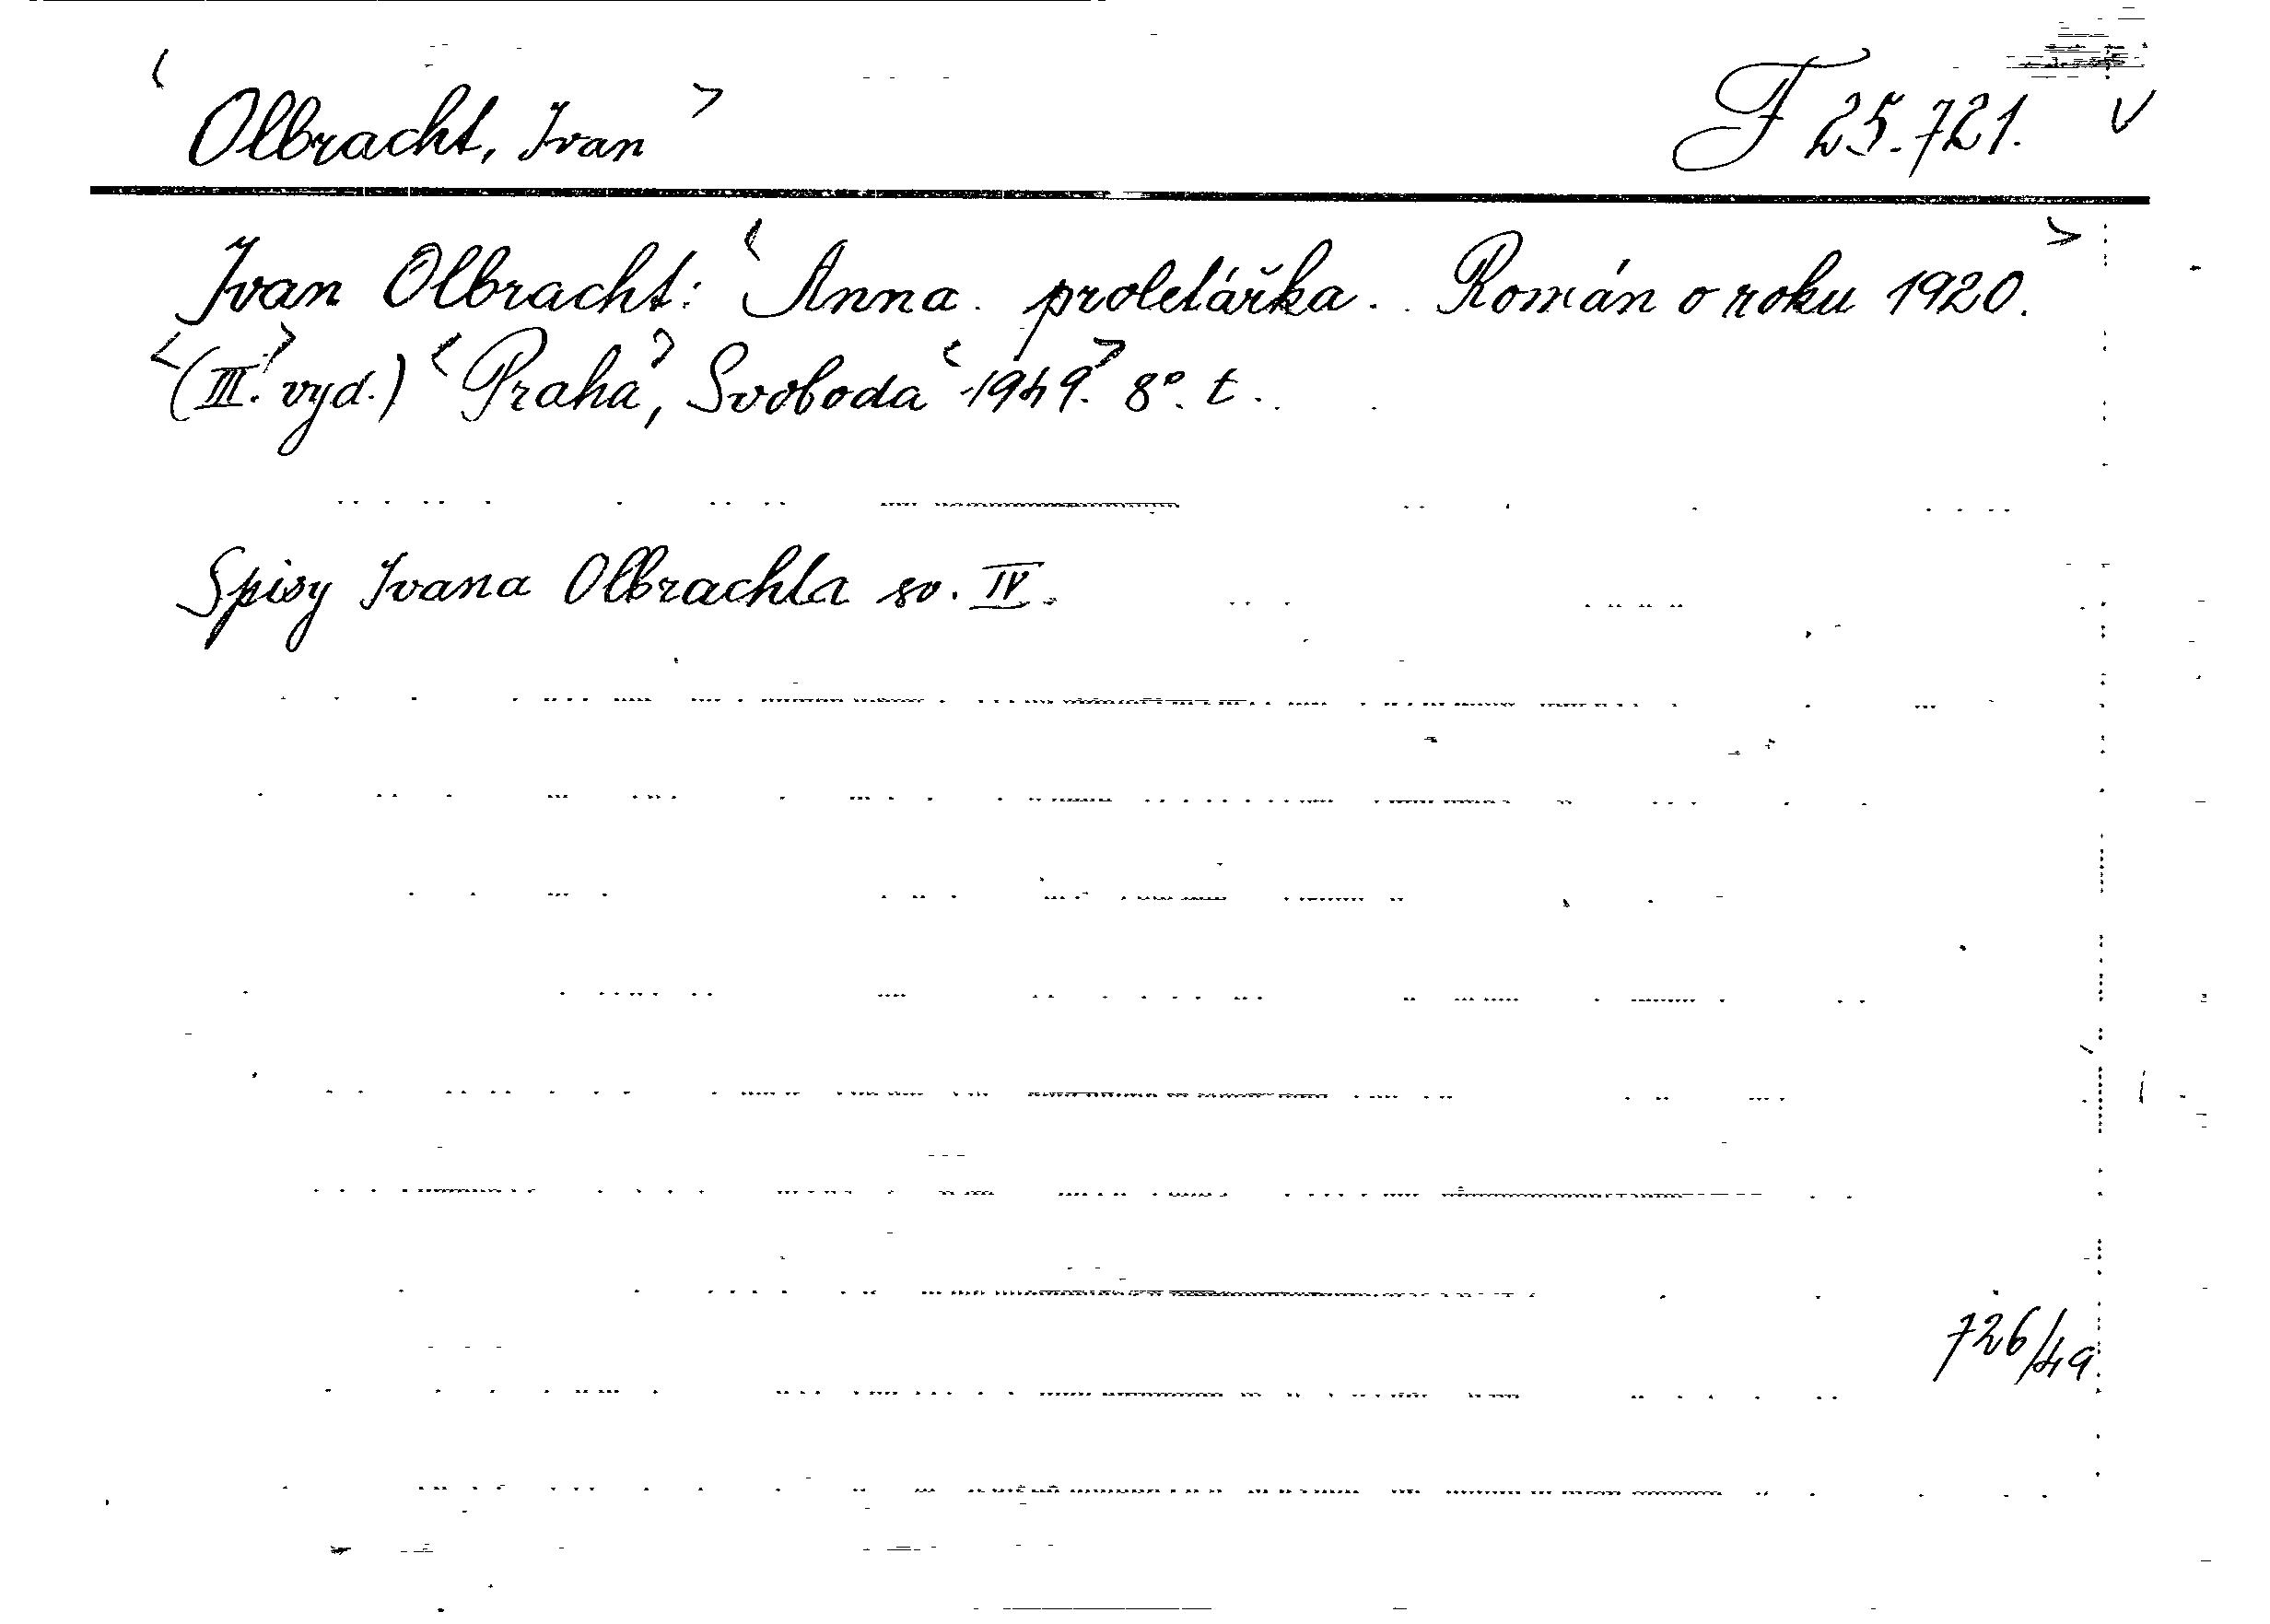 <Olbracht, Ivan> F 25.721. v
Ivan Olbracht: <Anna proletářka. Román o roku 1920.>
<(III.> vyd.) <Praha>, Svoboda <1949.> 8°. t.
Spisy Ivana Olbrachta sv. IV.
726/49.